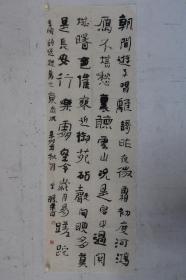 朝聞遊子唱離歌昨夜微霜初度河鴻
雁不堪愁裏聽雲山況是客中過關
城曙色催寒近御苑砧聲向晚多莫
是長安行樂處空令歲月易蹉跎